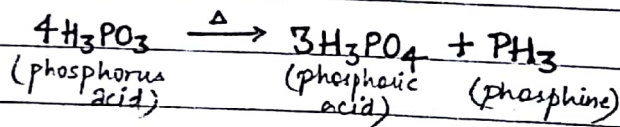 4H₃PO₃ —Δ→ 3H₃PO₄ + PH₃
(phosphorus acid) (phosphoric acid) (phosphine)